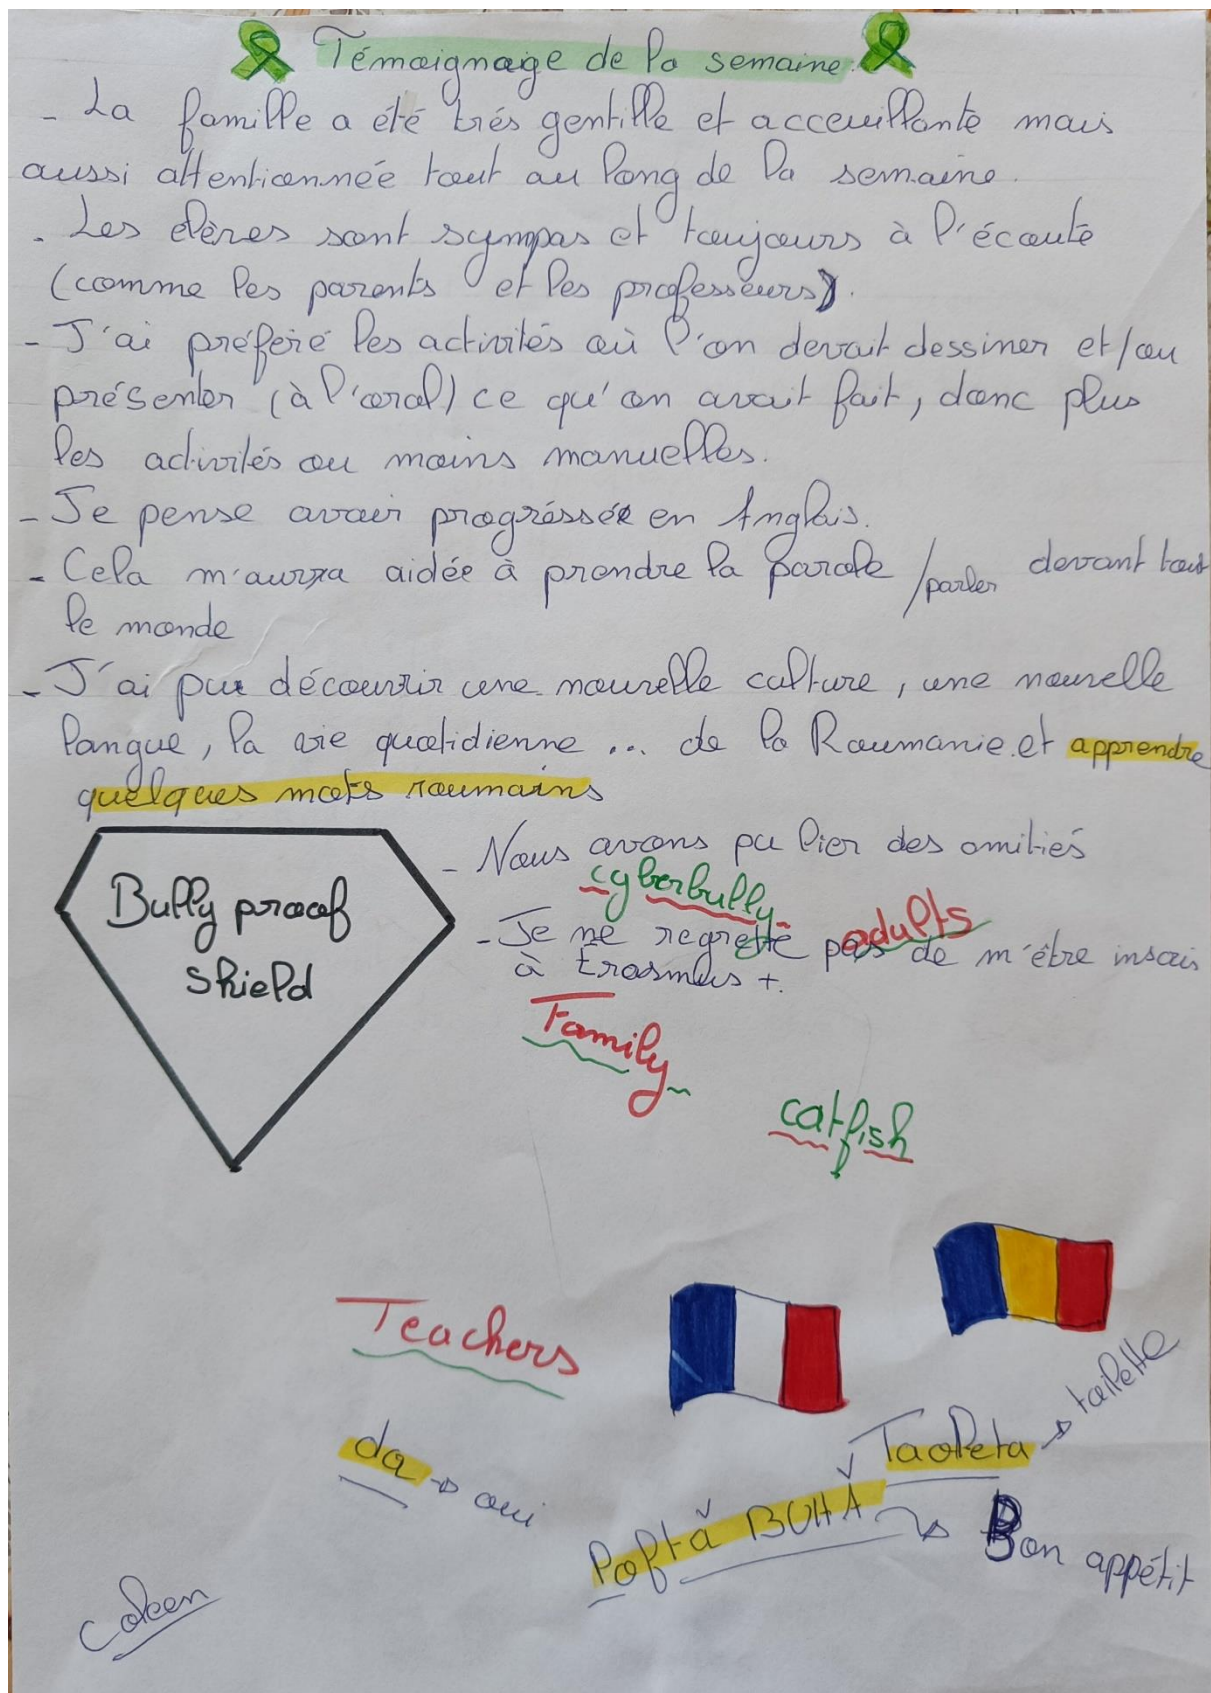 Témoignage de la semaine
- La famille a été trés gentille et acceuillante mais
aussi attentionnée tout au long de la semaine.
- Les élèves sont sympas et toujours à l'écoute
(comme les parents et les professeurs).
- J'ai préféré les activités où l'on devait dessiner et/ou
présenter (à l'oral) ce qu'on avait fait, donc plus
les activités ou moins manuelles.
- Je pense avoir progréssée en Anglais.
- Cela m'aura aidée à prendre la parole /parler devant tout
le monde
- J'ai pu découvrir une nouvelle culture, une nouvelle
langue, la vie quotidienne ... de la Roumanie et apprendre
quelques mots roumains
Bully proof
shield
- Nous avons pu lier des amitiés
cyberbully
adults
- Je ne regrette pas de m'être inscris
à Erasmus +.
Family
catfish
Teachers
da → oui
Taoleta → toilette
Poftă BUHĂ → Bon appétit